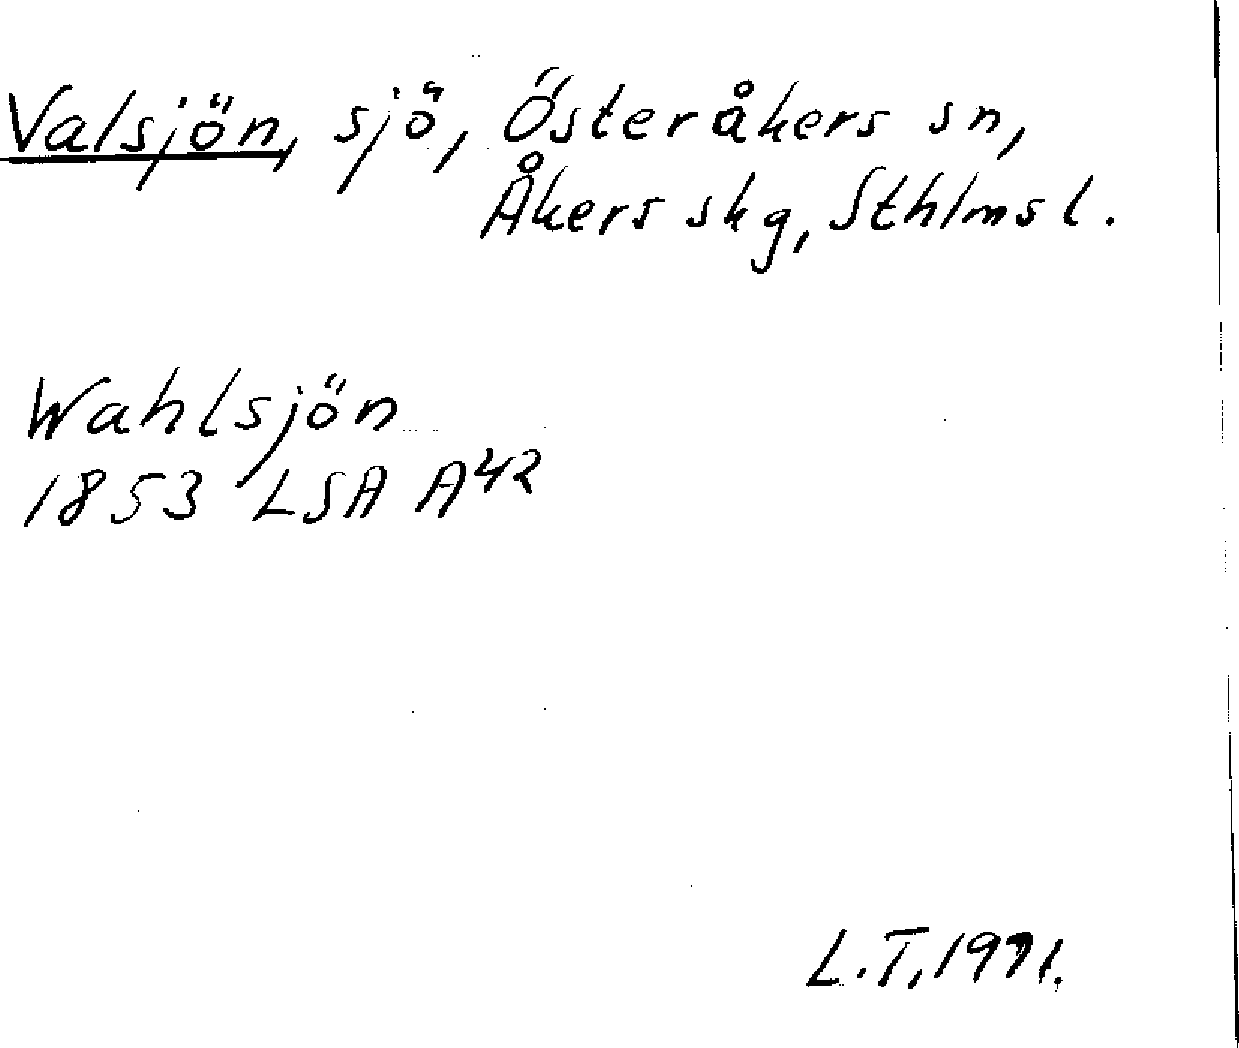 Valsjön, sjö, Österåkers sn,
Åkers skg, Sthlms l.
Wahlsjön
1853 LSA A42
L.T, 1991.